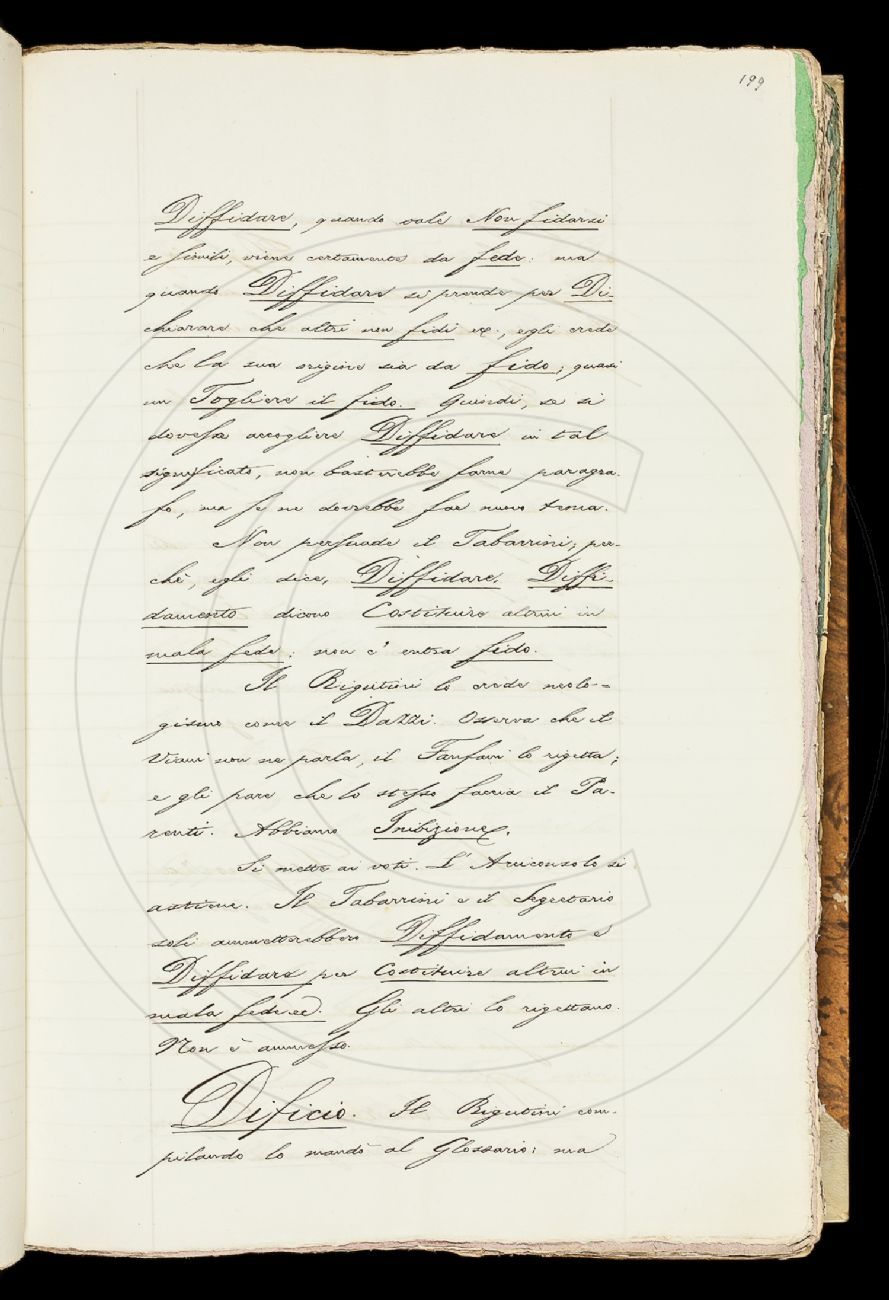 199
Diffidare, quando vale Non fidarsi
e simili, viene certamente da fede: ma
quando Diffidare si prende per Di-
chiarare che altri non fidi ec., egli crede
che la sua origine sia da fido; quasi
un Togliere il fido. Quindi, se si
dovesse accogliere Diffidare in tal
significato, non basterebbe farne paragra-
fo, ma se ne dovrebbe far nuovo tema.
Non persuade il Tabarrini; per-
chè, egli dice, Diffidare, Diffi-
damento dicono Costituire altrui in
mala fede: non c'entra fido.
Il Rigutini lo crede neolo-
gismo come il Dazzi. Osserva che il
Viani non ne parla, il Fanfani lo rigetta;
e gli pare che lo stesso faccia il Pa-
renti. Abbiamo Inibizione.
Si mette ai voti. L'Arciconsolo si
astiene. Il Tabarrini e il Segretario
soli ammetterebbero Diffidamento e
Diffidare per Costituire altrui in
mala fede ec. Gli altri lo rigettano.
Non è ammesso.
Dificio. Il Rigutini com-
pilando lo mandò al Glossario: ma